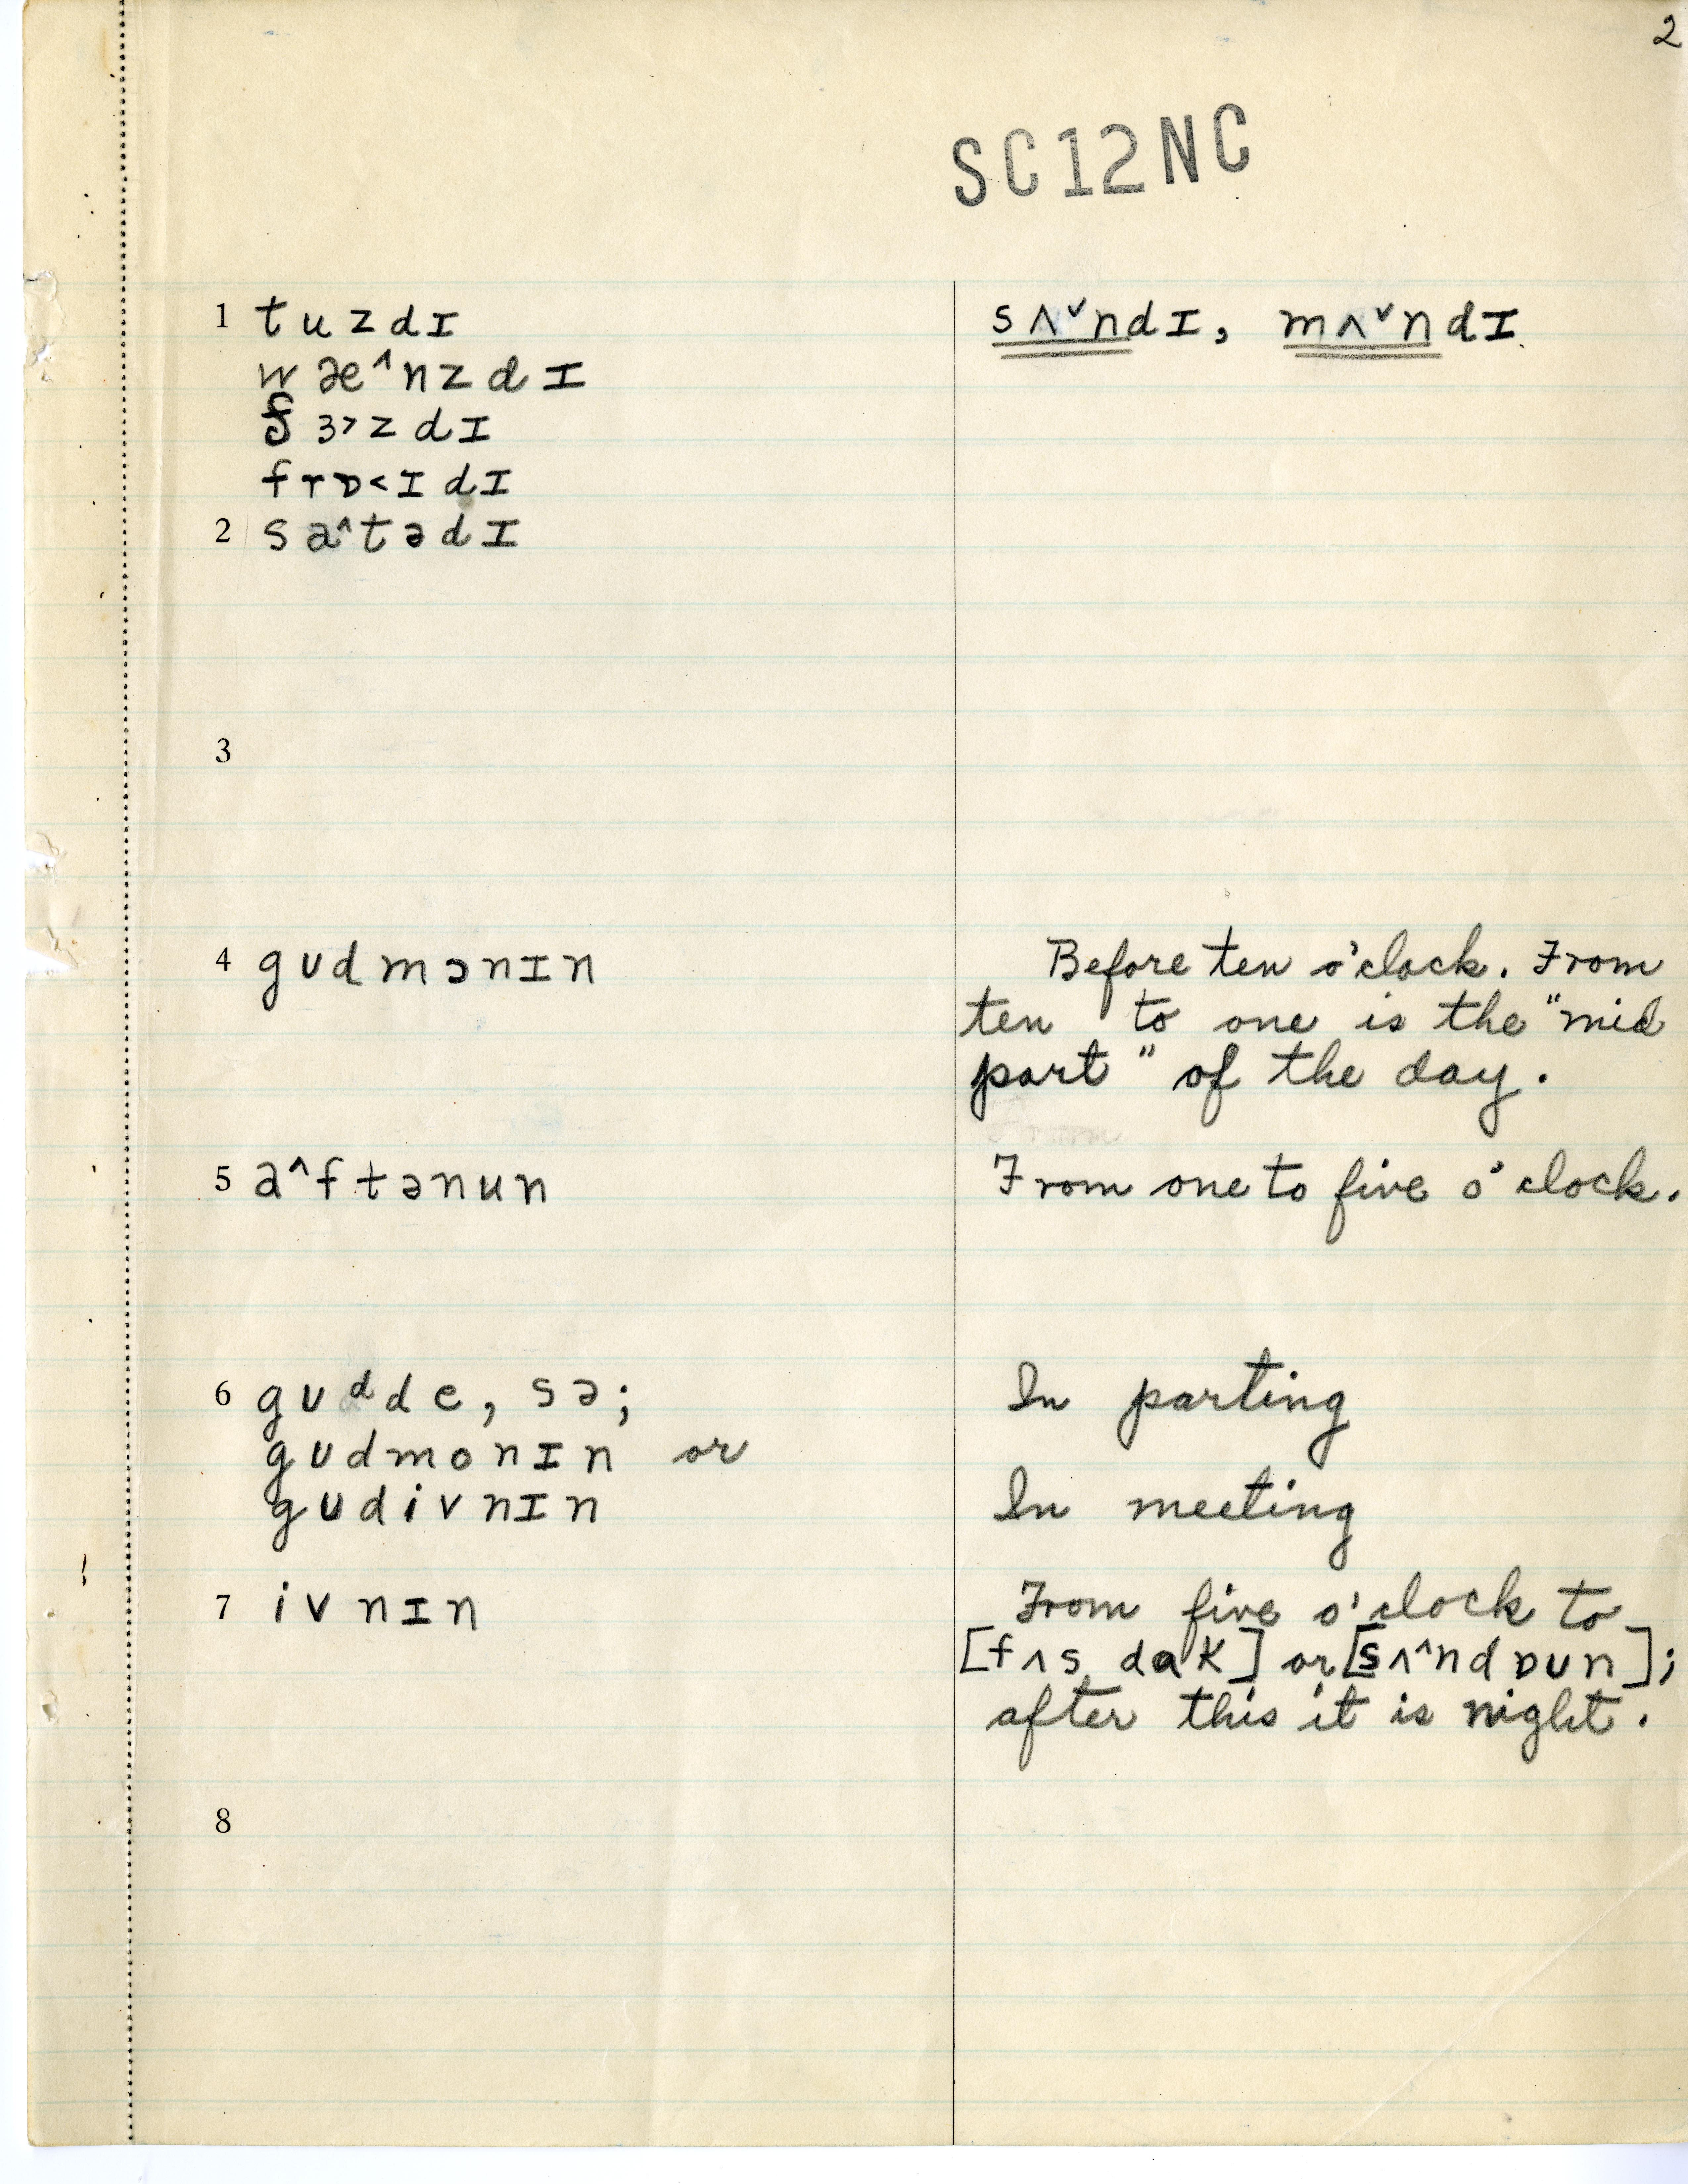 2
SC12NC
1 tuzdɪ sʌ˅ndɪ, mʌ˅ndɪ.
wæ˄nzdɪ
ɜ˃zdɪ
frɒ˂ɪdɪ
2 sa˄tədɪ
3
4 gʊdmɔnɪn Before ten o'clock. From
ten to one is the "mid
part" of the day.
5 a˄ftənun From one to five o'clock.
6 gʊdde, sə; In parting
gʊdmonɪn or
gʊdivnɪn In meeting
7 ivnɪn From five o'clock to
[fʌs dɑk] or [sʌ˄ndɒʊn];
after this it is night.
8